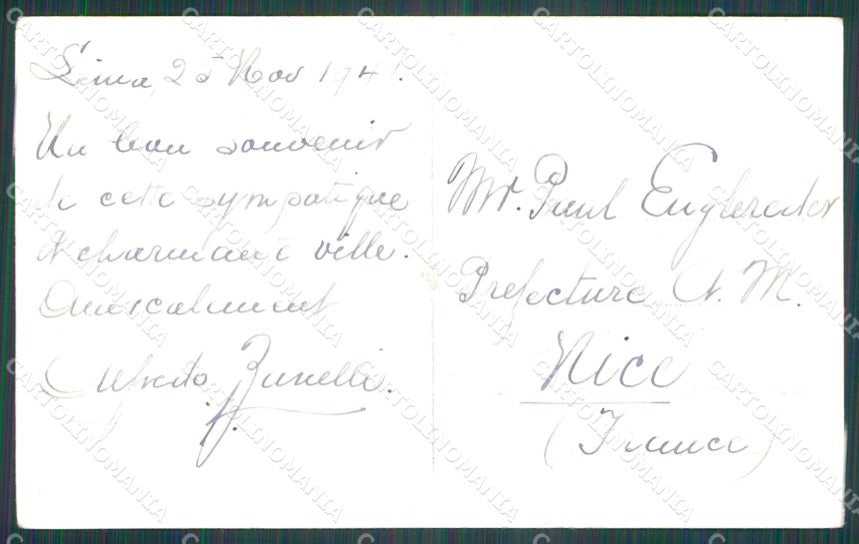 Lima, 25 Nov 194
Un bon souvenir
de cette sympatique
& charmante ville.
Amicalement
Alfredo Zunelli.
Mr. Paul
Prefecture A. M.
Nice
(France)
CARTOLINOMANIA